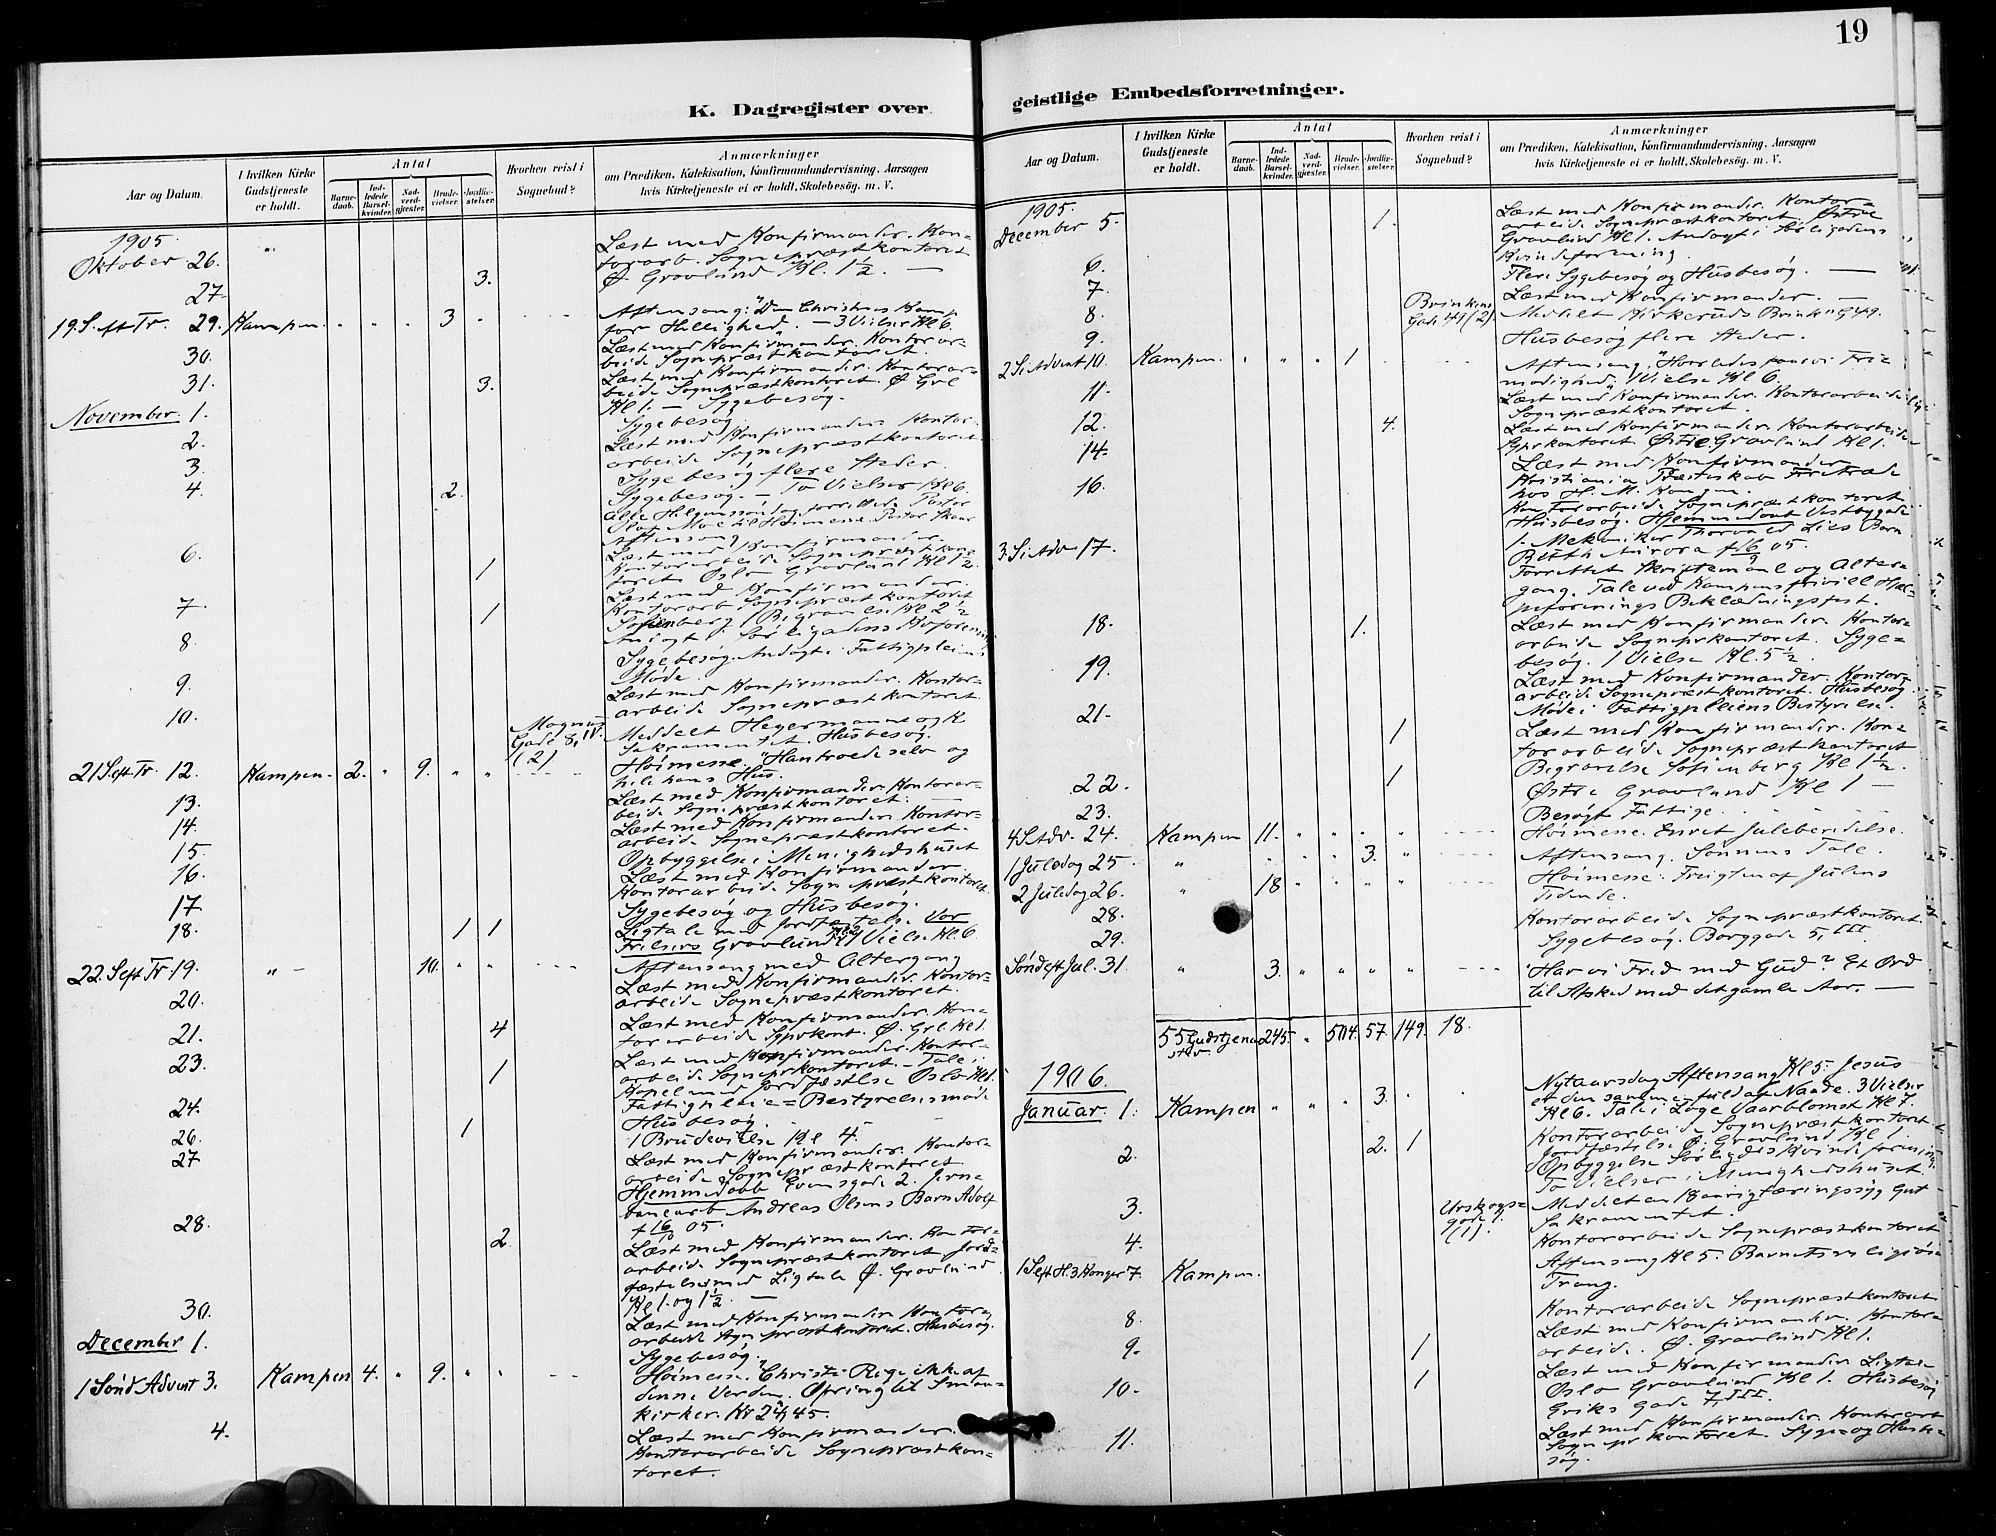 19
K. Dagregister over
Aar og Datum.
I hvilken Kirke
Gudstjeneste
er holdt.
Antal
Barne-
daab.
Ind-
ledede
Barsel-
kvinder.
Nad-
verd-
gjester.
Brude-
vielser.
Jordfæ-
stelser.
Hvorhen reist i
Sognebud?
Anmærkninger
om Prædiken, Katekisation, Konfirmandundervisning, Aarsagen
hvis Kirketjeneste ei er holdt, Skolebesøg. m. V.
1905.
Oktober 26.
Læst med Konfirmander. Kon-
torarb. Sognepræstkontoret
27. 3. Ø. Gravlund Kl. 1½. —
19. S. eft Tr. 29. Kampen. " " " 3 "
Aftensang: "Den Christnes Kamp
for Hellighed". — 3 Vielser Kl 6.
30. Læst med Konfirmander. Kontorar-
beide Sognepræstkontoret.
31. 3. Læst med Konfirmander. Kontorar-
beide Sognepræstkontoret. Ø Grl
Kl 1. — Sygebesøg.
November 1. Sygebesøg.
2. Læst med Konfirmander Kontor-
arbeide Sognepræstkontoret.
3. Sygebesøg flere Steder.
4. 2. Sygebesøg. — To Vielser Kl 6.
Alle Helgenssøndag forrettede Pastor
Olaf Moe til Høimesse. Pastor
Aftensang.
6. 1 Læst med Konfirmander.
Kontorarbeide Sognepræstkon-
toret Oslo Gravlund Kl 1½
7. 1 Læst med Konfirmander.
Kontorarb Sognepræstkontoret
Sofienberg 1 Begravelse Kl 2½
Andagt i Sørligadens Kvforening
8. Sygebesøg. Andagt i Fattigpleiens
Møde.
9. Læst med Konfirmander. Kontor-
arbeide Sognepræstkontoret.
10. Magnus
Gade 8, IV.
(2)
Meddelt Hegermann og K
Sakramentet. Husbesøg.
21 S eft Tr. 12. Kampen. 2. " 9. " "
Høimesse. "Han troede selv og
hele hans Hus.
13. Læst med Konfirmander. Kontorar-
beide Sognepræstkontoret. —
14. Læst med Konfirmander Kontor-
arbeide Sognepræstkontoret.
15. Opbyggelse i Menighedshuset
16. Læst med Konfirmander.
Kontorarbeide Sognepræstkontoret.
17. Sygebesøg og Husbesøg.
18. 1. 1. Ligtale med Jordfæstelse Vor
Frelsers Gravlund Kl 2. 1 Vielse Kl. 6.
22. S eft Tr. 19. " — 10. " "
Aftensang med Altergang
20. Læst med Konfirmander. Kontor-
arbeide Sognepræstkontoret.
21. 4 Læst med Konfirmander. Kon-
torarbeide Sgprkont. Ø. Grl. Kl 1.
23. 1 Læst med Konfirmander. Kontor-
arbeide Sogneprkontoret. — Tale i
Kapel med Jordfæstelse Oslo Kl 1.
24. Fattigpleie = Bestyrelsesmøde
Husbesøg.
26. 1 1 Brudevielse Kl 4.
27 Læst med Konfirmander. Kontor-
arbeide Sognepræstkontoret
Hjemmedøbt Evensgade 2. Jern-
banearb Andreas Olsens Barn Adolf
f 16/10 05.
28. 2 Læst med Konfirmander. Kontor-
arbeide Sognepræstkontoret Jord-
fæstelser med Ligtale Ø. Gravlund
Kl 1. og 1½. —
30. Læst med Konfirmander. Kontor-
arbeide Sgn præstkontoret. Husbesøg.
December 1. Sygebesøg.
1 Sønd Advent 3. Kampen 4. " 9. " "
Høimesse. Christi Rige ikke af
denne Verden. Ofring til Smaa-
kirker. Kr 24,45.
4. Læst med Konfirmander.
Kontorarbeide Sognepræstkon-
toret.
geistlige Embedsforretninger.
Aar og Datum.
I hvilken Kirke
Gudstjeneste
er holdt.
Antal
Barne-
daab.
Ind-
ledede
Barsel-
kvinder.
Nad-
verd-
gjester.
Brude-
vielser.
Jordfæ-
stelser.
Hvorhen reist i
Sognebud?
Anmærkninger
om Prædiken, Katekisation, Konfirmandundervisning, Aarsagen
hvis Kirketjeneste ei er holdt, Skolebesøg. m. V.
1905.
December 5. 1. Læst med Konfirmander. Kontor-
arbeide Sognepræstkontoret. Østre
Gravlund Kl 1. Andagt i Sørligadens
Kvindeforening.
6. Flere Sygebesøg og Husbesøg. —
7. Læst med Konfirmander. —
8. Brinkens
Gade 49 (2).
Meddelt Kirkeruds Brinkens G 49.
9. Husbesøg flere Steder.
2 S i Advent 10. Kampen. " " " 1
Aftensang. "Hvorledes faar vi Fri-
modighed". 1 Vielse Kl 6.
11. Læst med Konfirmander. Kontorarbeide
Sognepræstkontoret.
12. 4. Læst med Konfirmander Kontorarbeide
Sgprkontoret Østre Gravlund Kl 1.
14. Læst med Konfirmander
Kristiania Præsteskab Foretræde
hos H. M. Kongen.
16. Kontorarbeide Sognepræstkontoret.
Husbesøg. Hjemmedøbt Vestbygade
1. Mekaniker Thorvald Lies Barn
Aurora f 16/9 05.
3. S i Adv. 17. Forrettet Skriftemaal og Alter-
gang. Tale ved Kampens frivill Hjæl-
peforenings Beklædningsfest.
18. 1. Læst med Konfirmander. Kontor-
arbeide Sogneprkontoret. Syge-
besøg. 1 Vielse Kl. 5½.
19. Læst med Konfirmander. Kontor-
arbeide Sognepræstkontoret. Husbesøg
Møde i Fattigpleiens Bestyrelse.
21. 1 Læst med Konfirmander. Kon-
torarbeide Sognepræstkontoret
Begravelse Sofienberg Kl 1½.
22. 1 Østre Gravlund Kl 1 —
23. Besøgt Fattige.
4 S Adv. 24. Kampen 11. " " " "
Høimesse. Enret Juleberedelse.
1 Juledag 25. " " " " 3. "
Aftensang. Sønnens Tale.
2 Juledag 26. " 18 " " " "
Høimesse. Frugten af Julens
Tidende.
28. Kontorarbeide Sognepræstkontoret.
29. Sygebesøg. Borggade 5, III.
Sønd eft Jul. 31. " 3. " " " "
"Har vi Fred med Gud"? Et Ord
til Afsked med det gamle Aar. —
55 Gudstjene-
ster. 245. " 504. 57. 149. 18.
1906.
Januar 1. Kampen " " " 3. "
Nytaarsdag Aftensang Kl 5. Jesus
et den samme fuld af Naade. 3 Vielser
Kl 6. Tale i Loge Vaarblomst Kl 7.
2. 2. 1 Kontorarbeide Sognepræstkontoret
Jordfæstelse Ø. Gravlund Kl 1.
Opbyggelse Sørligds Kvindeforening.
To Vielser i Menighedshuset.
3. Urskogs-
gade 1.
(1).
Meddelt en 18 aarig tæringssyg Gut
Sakramentet.
4. Kontorarbeide Sognepræstkontoret
1 S eft H. 3 Konger 7. Kampen.
Aftensang Kl 5. Barnets religiøse
Trang.
8. Kontorarbeide Sognepræstkontoret
9. 1 Læst med Konfirmander. Kontor-
arbeide. Ø. Gravlund Kl 1.
10. 1 Læst med Konfirmander Ligtale
Oslo Gravlund Kl 1. Husbesøg
Eriks Gade 7, III.
11. Læst med Konfirmander. Kontorarb
Sognepr kontoret. Syge og Husbe-
søg.